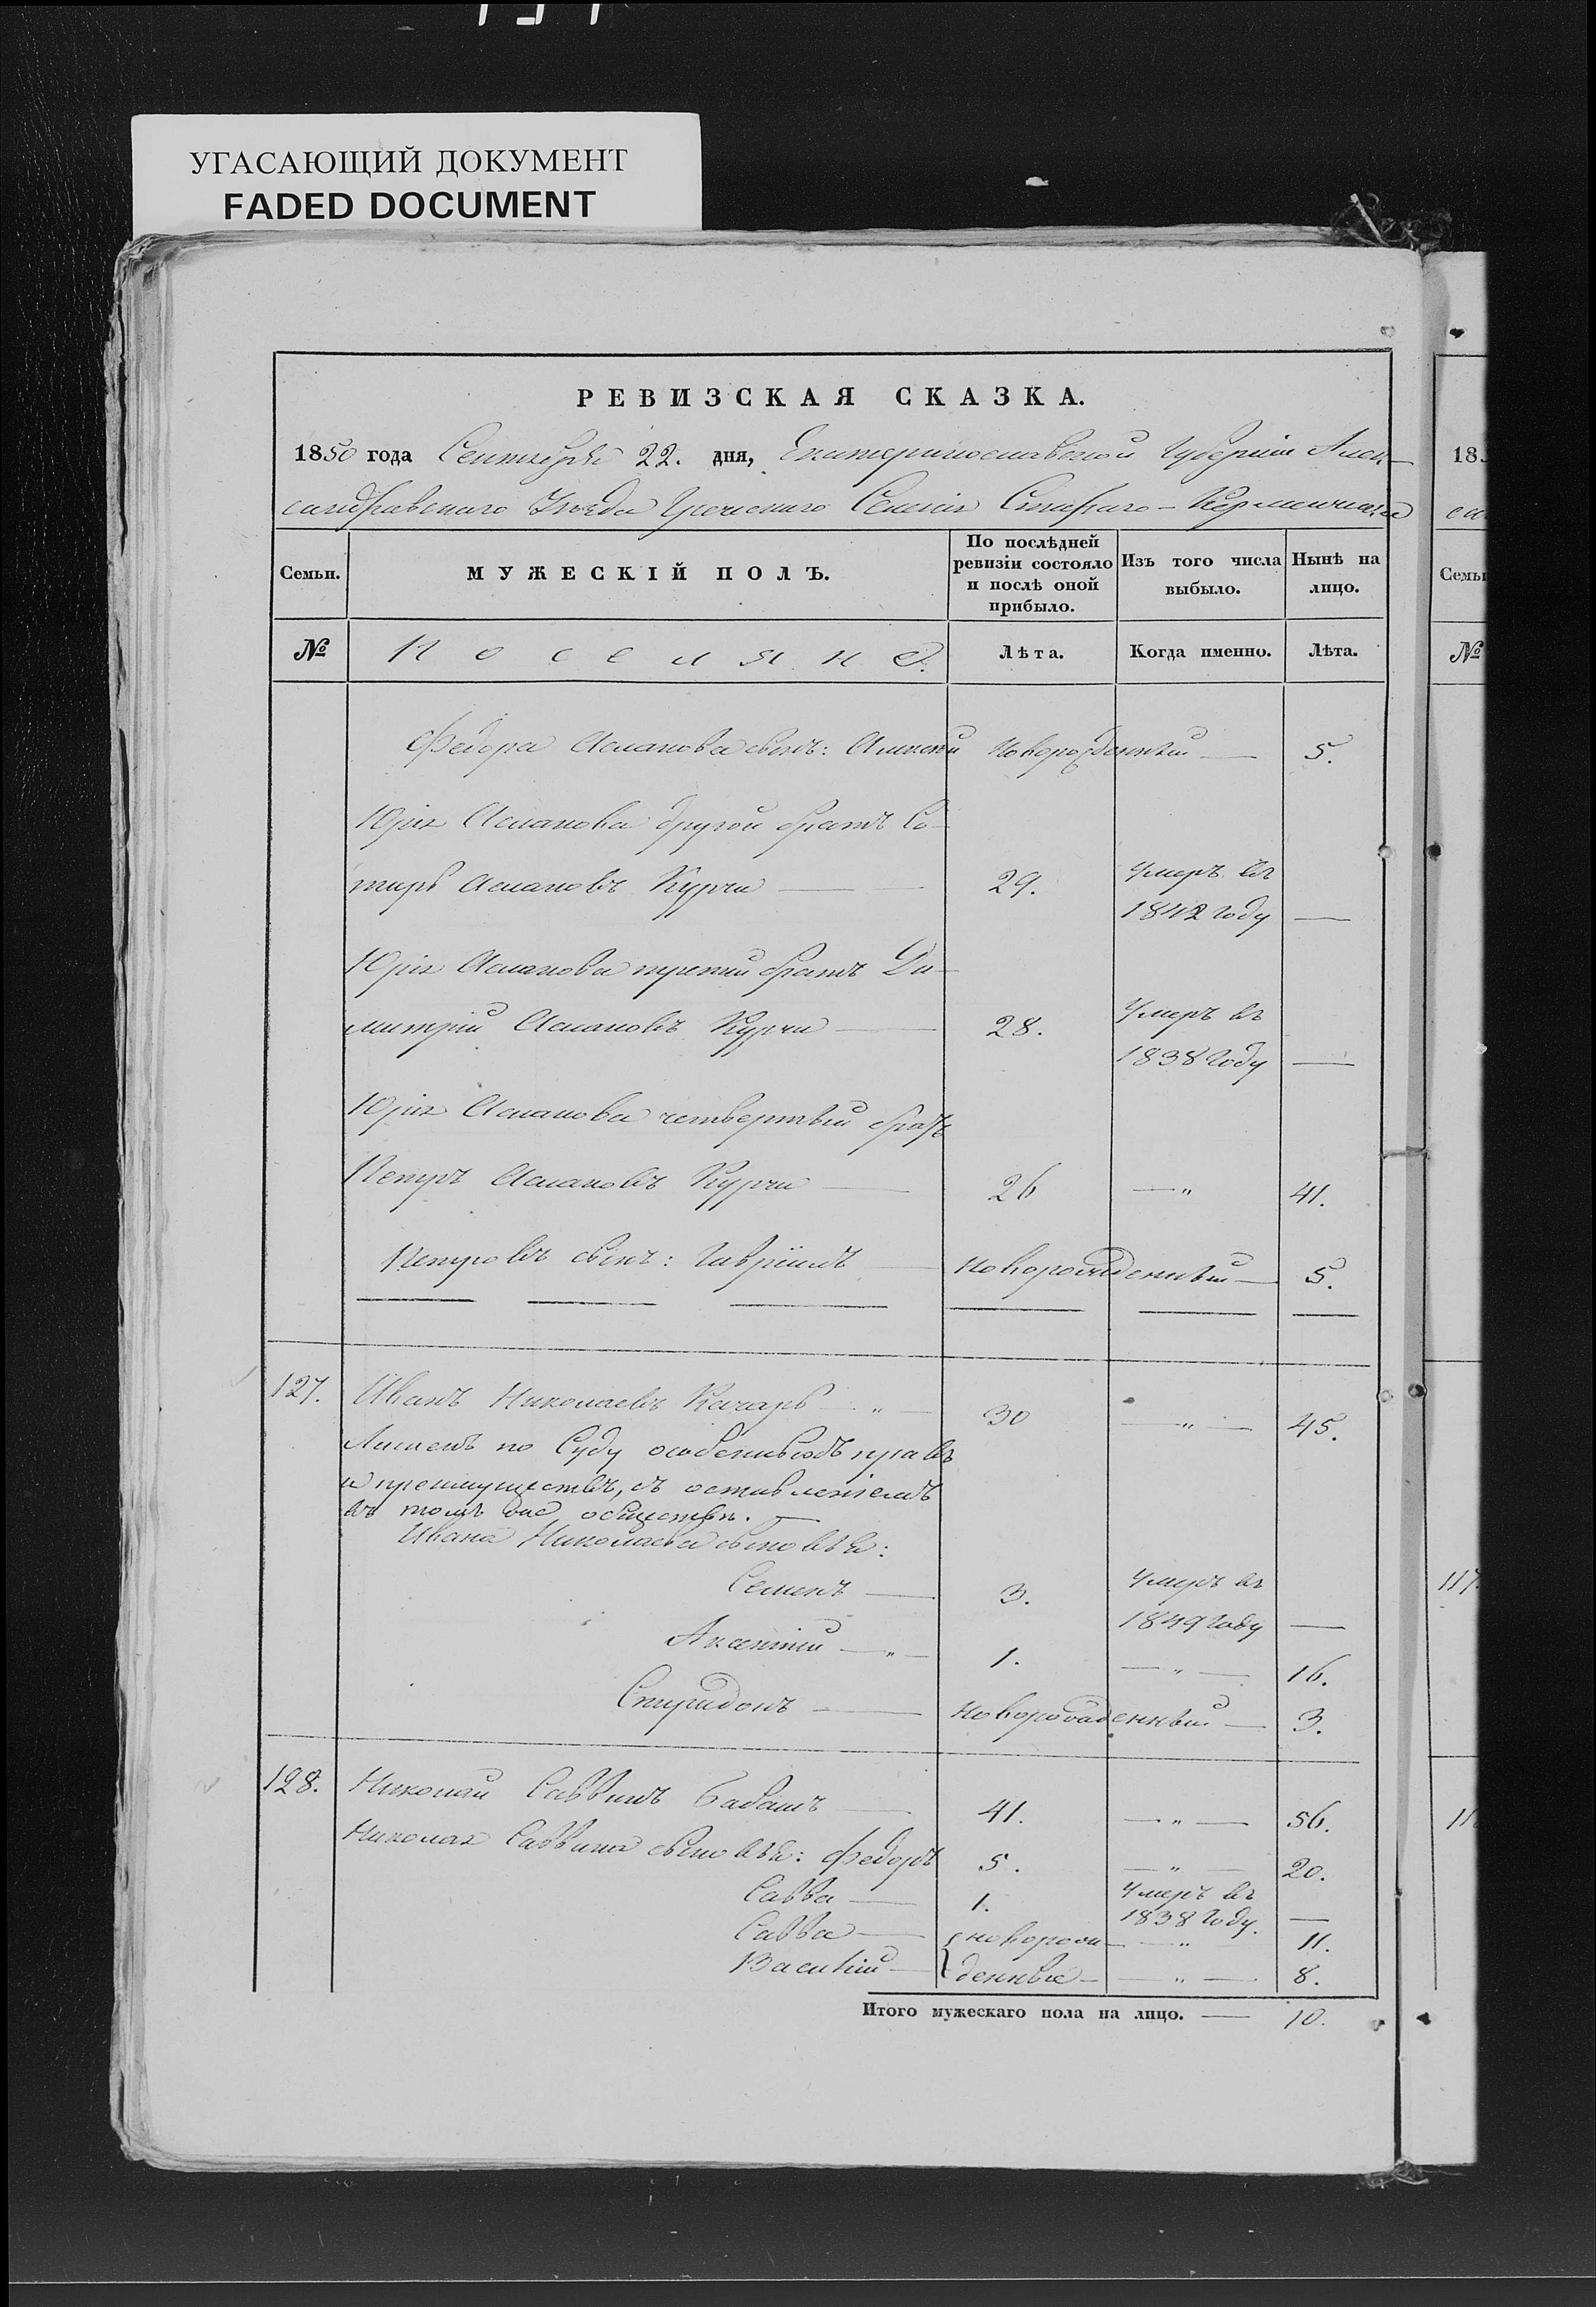 УГАСАЮЩИЙ ДОКУМЕНТ
FADED DOCUMENT
РЕВИЗСКАЯ СКАЗКА.
1850 года Сентября 22. дня, Екатеринославской Губерніи Алек-
сандравскаго Уезда Греческаго Селенія Стараго-Керменчика
Семьи. МУЖЕСКІЙ ПОЛЪ. По послѣдней ревизіи состояло и послѣ оной прибыло. Изъ того числа выбыло. Нынѣ на лицо.
№ Поселяне. Лѣта. Когда именно. Лѣта.
Федора Асланова сынъ: Алексѣй Новорожденный — 5.
Юрія Асланова другой братъ Со-
тиръ Аслановъ Курчи — 29. Умеръ въ
1842 году —
Юрія Асланова третій братъ Ди-
митрій Аслановъ Курчи — 28. Умеръ въ
1838 году —
Юрія Асланова четвертый братъ
Петръ Аслановъ Курчи — 26 — „ 41.
Петровъ сынъ: Гавріилъ — новорожденный — 5.
127. Иванъ Николаевъ Качаръ — „ — 30 — „ — 45.
Лишенъ по Суду особенныхъ правъ
и преимуществъ, съ оставленіемъ
въ томъ же обществѣ. —
Ивана Николаева сыновья:
Семенъ — 3. Умеръ въ
1849 году —
Аксентій — „ — 1. — „ — 16.
Спиридонъ — новорожденный — 3.
128. Николай Саввинъ Бабашъ — 41. — „ — 56.
Николая Саввина сыновья: Федоръ 5. — „ — 20.
Савва — 1. Умеръ въ
1838 году. —
Савва — { новорож- — „ — 11.
Василій — денные — — „ — 8.
Итого мужескаго пола на лицо. — 10.
18
Семьи
№
117.